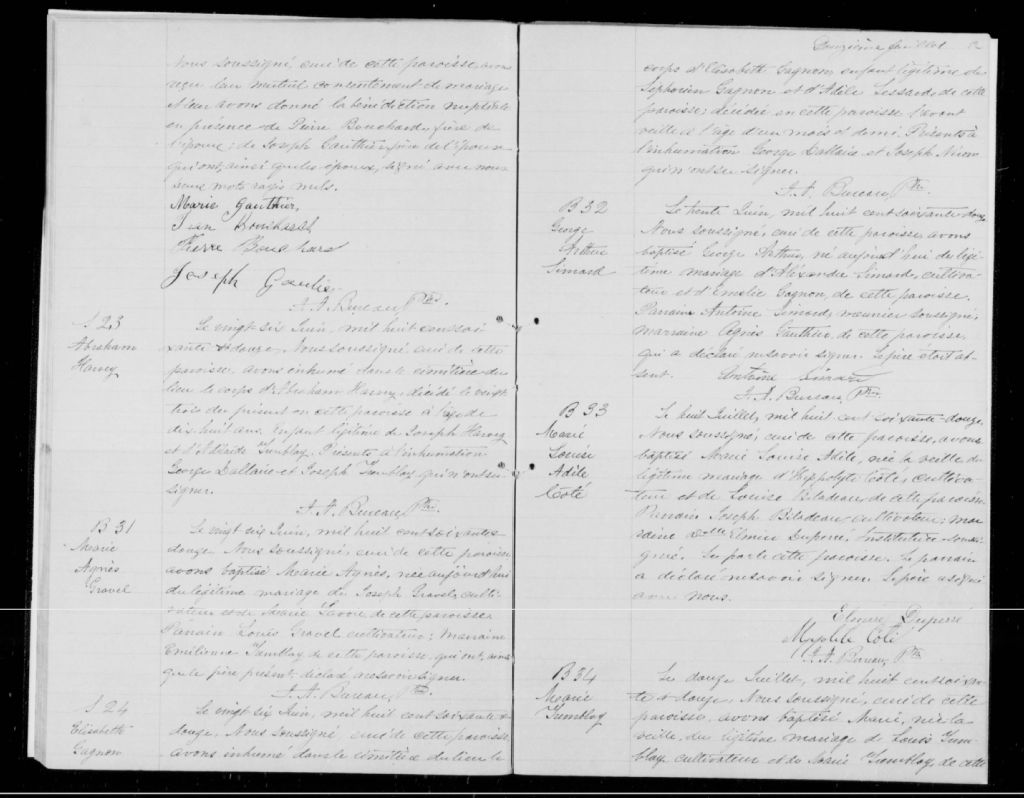 Nous soussigné, curé de cette paroisse avons
reçu leur mutuel consentement de mariage
et leur avons donné la bénédiction nuptiale
en présence de Pierre Bouchard, père de
l'époux; de Joseph Gauthier père de l'épouse
qui ont, ainsi que les époux, signé avec nous
mots rayés nuls.
Marie Gauthier,
Jean Bouchard
Pierre Bouchard
Joseph
A. A. Bureau, Ptre.
S 23
Abraham
Harvey
Le vingt six Juin, mil huit cent soi
xante & douze, Nous soussigné, curé de cette
paroisse avons inhumé dans le cimétière du
lieu le corps d'Abraham Harvey, décédé le vingt
trois du présent en cette paroisse à l'age de
dix huit ans. Enfant légitime de Joseph Harvey
et d'Adélaïde Tremblay. Présents à l'inhumation
George Dallaire et Joseph Tremblay qui n'ont su
signer.
A. A. Bureau, Ptre.
B 31
Marie
Agnès
Gravel
Le vingt six Juin, mil huit cent soixante &
douze Nous soussigné, curé de cette paroisse
avons baptisé Marie Agnès, née aujourd'hui
du légitime mariage de Joseph Gravel, culti-
vateur et de Marie Savoie de cette paroisse.
Parrain Louis Gravel cultivateur; marraine
Emilienne Tremblay de cette paroisse qui ont, ainsi
que le père présent, déclaré ne savoir signer.
A. A. Bureau, Ptre.
S 24
Elisabeth
Gagnon
Le vingt six Juin, mil huit cent soixante &
douze, Nous soussigné curé de cette paroisse
avons inhumé dans le cimétière du lieu le
Deuzième feuillet
corps d'Elisabeth Gagnon, enfant légitime de
Gagnon et d'Adile Lessard de cette
paroisse; décédée en cette paroisse l'avant
veille à l'âge d'un mois et demi. Présents à
l'inhumation George Dallaire et Joseph
qui n'ont su signer.
A. A. Bureau, Ptre.
B 32
George
Arthur
Simard
Le trente Juin, mil huit cent soixante & douze
Nous soussigné, curé de cette paroisse, avons
baptisé George Arthur, né aujourd'hui du légi-
time mariage d'Alexandre Simard, cultiva-
teur et d'Emélie Gagnon, de cette paroisse.
Parrain Antoine Simard, meunier soussigné;
marraine Agnès Gauthier de cette paroisse
qui a déclaré ne savoir signer. Le père était ab-
sent. Antoine Simard
A. A. Bureau, Ptre.
B 33
Marie
Louise
Adile
Coté
Le huit Juillet, mil huit cent soixante-douze,
Nous soussigné, curé de cette paroisse, avons
baptisé Marie Louise Adile, née la veille du
légitime mariage d'Hippolyte Coté, cultiva-
teur et de Louise Biladeau, de cette paroisse.
Parrain Joseph Biladeau, cultivateur; mar-
raine Delle Elmire Duperré, Institutrice sous-
signée. de cette paroisse. Le parrain
a déclaré ne savoir signer. Le père a signé
avec nous.
Elmire Duperré
Coté
A. A. Bureau, Ptre
B 34
Marie
Tremblay
Le douze Juillet, mil huit cent soixan-
te & douze, Nous soussigné, curé de cette
paroisse, avons baptisé Marie, née la
veille, du légitime mariage de Louis Trem-
blay cultivateur et de Marie Tremblay, de cette